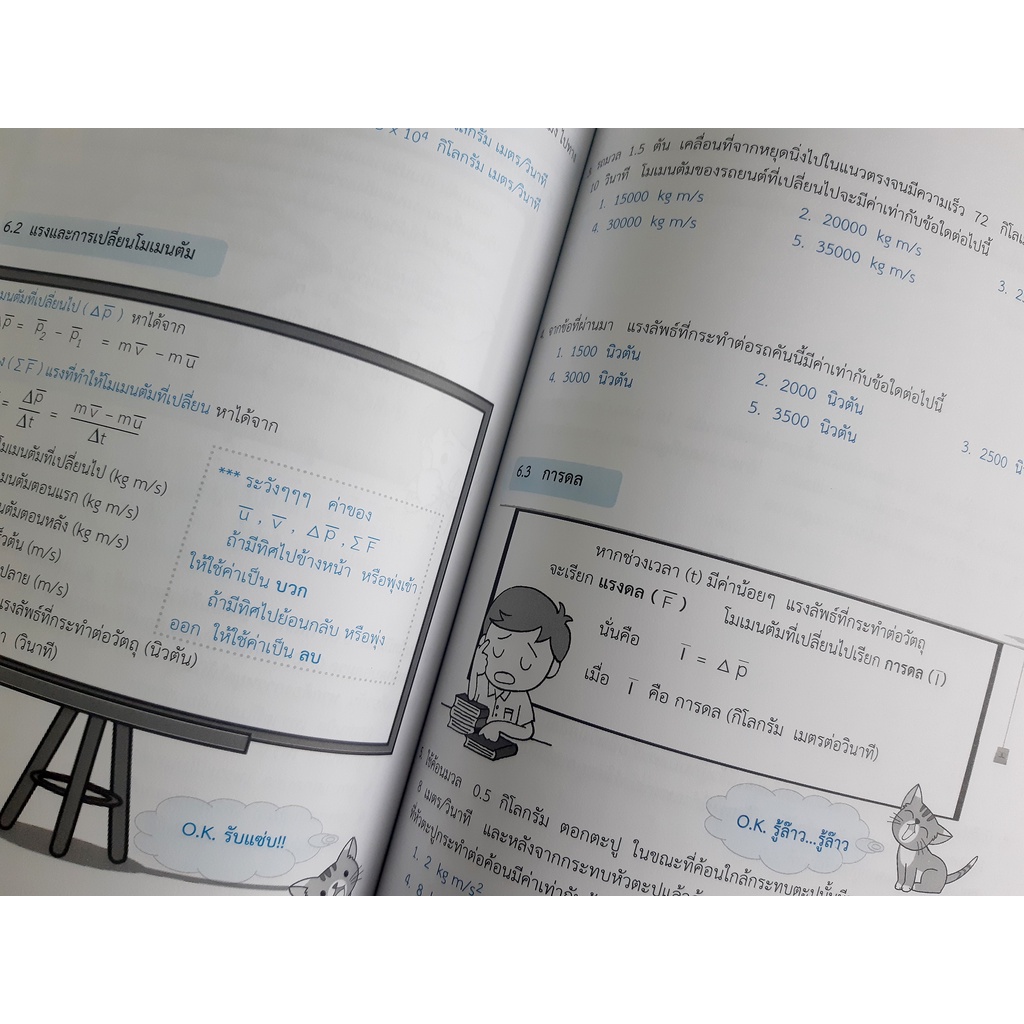 กิโลกรัม เมตร/วินาที
× 10⁴ กิโลกรัม เมตร/วินาที
6.2 แรงและการเปลี่ยนโมเมนตัม
เมนตัมที่เปลี่ยนไป (Δp̄) หาได้จาก
Δp̄ = p̄₂ - p̄₁ = mv̄ - mū
(ΣF̄) แรงที่ทำให้โมเมนตัมที่เปลี่ยน หาได้จาก
= Δp̄/Δt = (mv̄ - mū)/Δt
โมเมนตัมที่เปลี่ยนไป (kg m/s)
เมนตัมตอนแรก (kg m/s)
นตัมตอนหลัง (kg m/s)
เร็วต้น (m/s)
ปลาย (m/s)
แรงลัพธ์ที่กระทำต่อวัตถุ (นิวตัน)
(วินาที)
*** ระวังๆๆๆ ค่าของ
ū , v̄ , Δp̄ , ΣF̄
ถ้ามีทิศไปข้างหน้า หรือพุ่งเข้า
ให้ใช้ค่าเป็น บวก
ถ้ามีทิศไปย้อนกลับ หรือพุ่ง
ออก ให้ใช้ค่าเป็น ลบ
O.K. รับแซ่บ!!
3. รถมวล 1.5 ตัน เคลื่อนที่จากหยุดนิ่งไปในแนวตรงจนมีความเร็ว 72
10 วินาที โมเมนตัมของรถยนต์ที่เปลี่ยนไปจะมีค่าเท่ากับข้อใดต่อไปนี้
1. 15000 kg m/s
2. 20000 kg m/s
3.
4. 30000 kg m/s
5. 35000 kg m/s
4. จากข้อที่ผ่านมา แรงลัพธ์ที่กระทำต่อรถคันนี้มีค่าเท่ากับข้อใดต่อไปนี้
1. 1500 นิวตัน
2. 2000 นิวตัน
3. 2500
4. 3000 นิวตัน
5. 3500 นิวตัน
6.3 การดล
หากช่วงเวลา (t) มีค่าน้อยๆ แรงลัพธ์ที่กระทำต่อวัตถุ
จะเรียก แรงดล (F̄) โมเมนตัมที่เปลี่ยนไปเรียก การดล (Ī)
นั่นคือ Ī = Δp̄
เมื่อ Ī คือ การดล (กิโลกรัม เมตรต่อวินาที)
O.K. รู้ล๊าว...รู้ล๊าว
5. ใช้ค้อนมวล 0.5 กิโลกรัม ตอกตะปู ในขณะที่ค้อนใกล้กระทบตะปูนั้น
8 เมตร/วินาที และหลังจากกระทบหัวตะปูแล้ว
ที่หัวตะปูกระทำต่อค้อนมีค่าเท่ากับ
1. 2 kg m/s²
4. 8